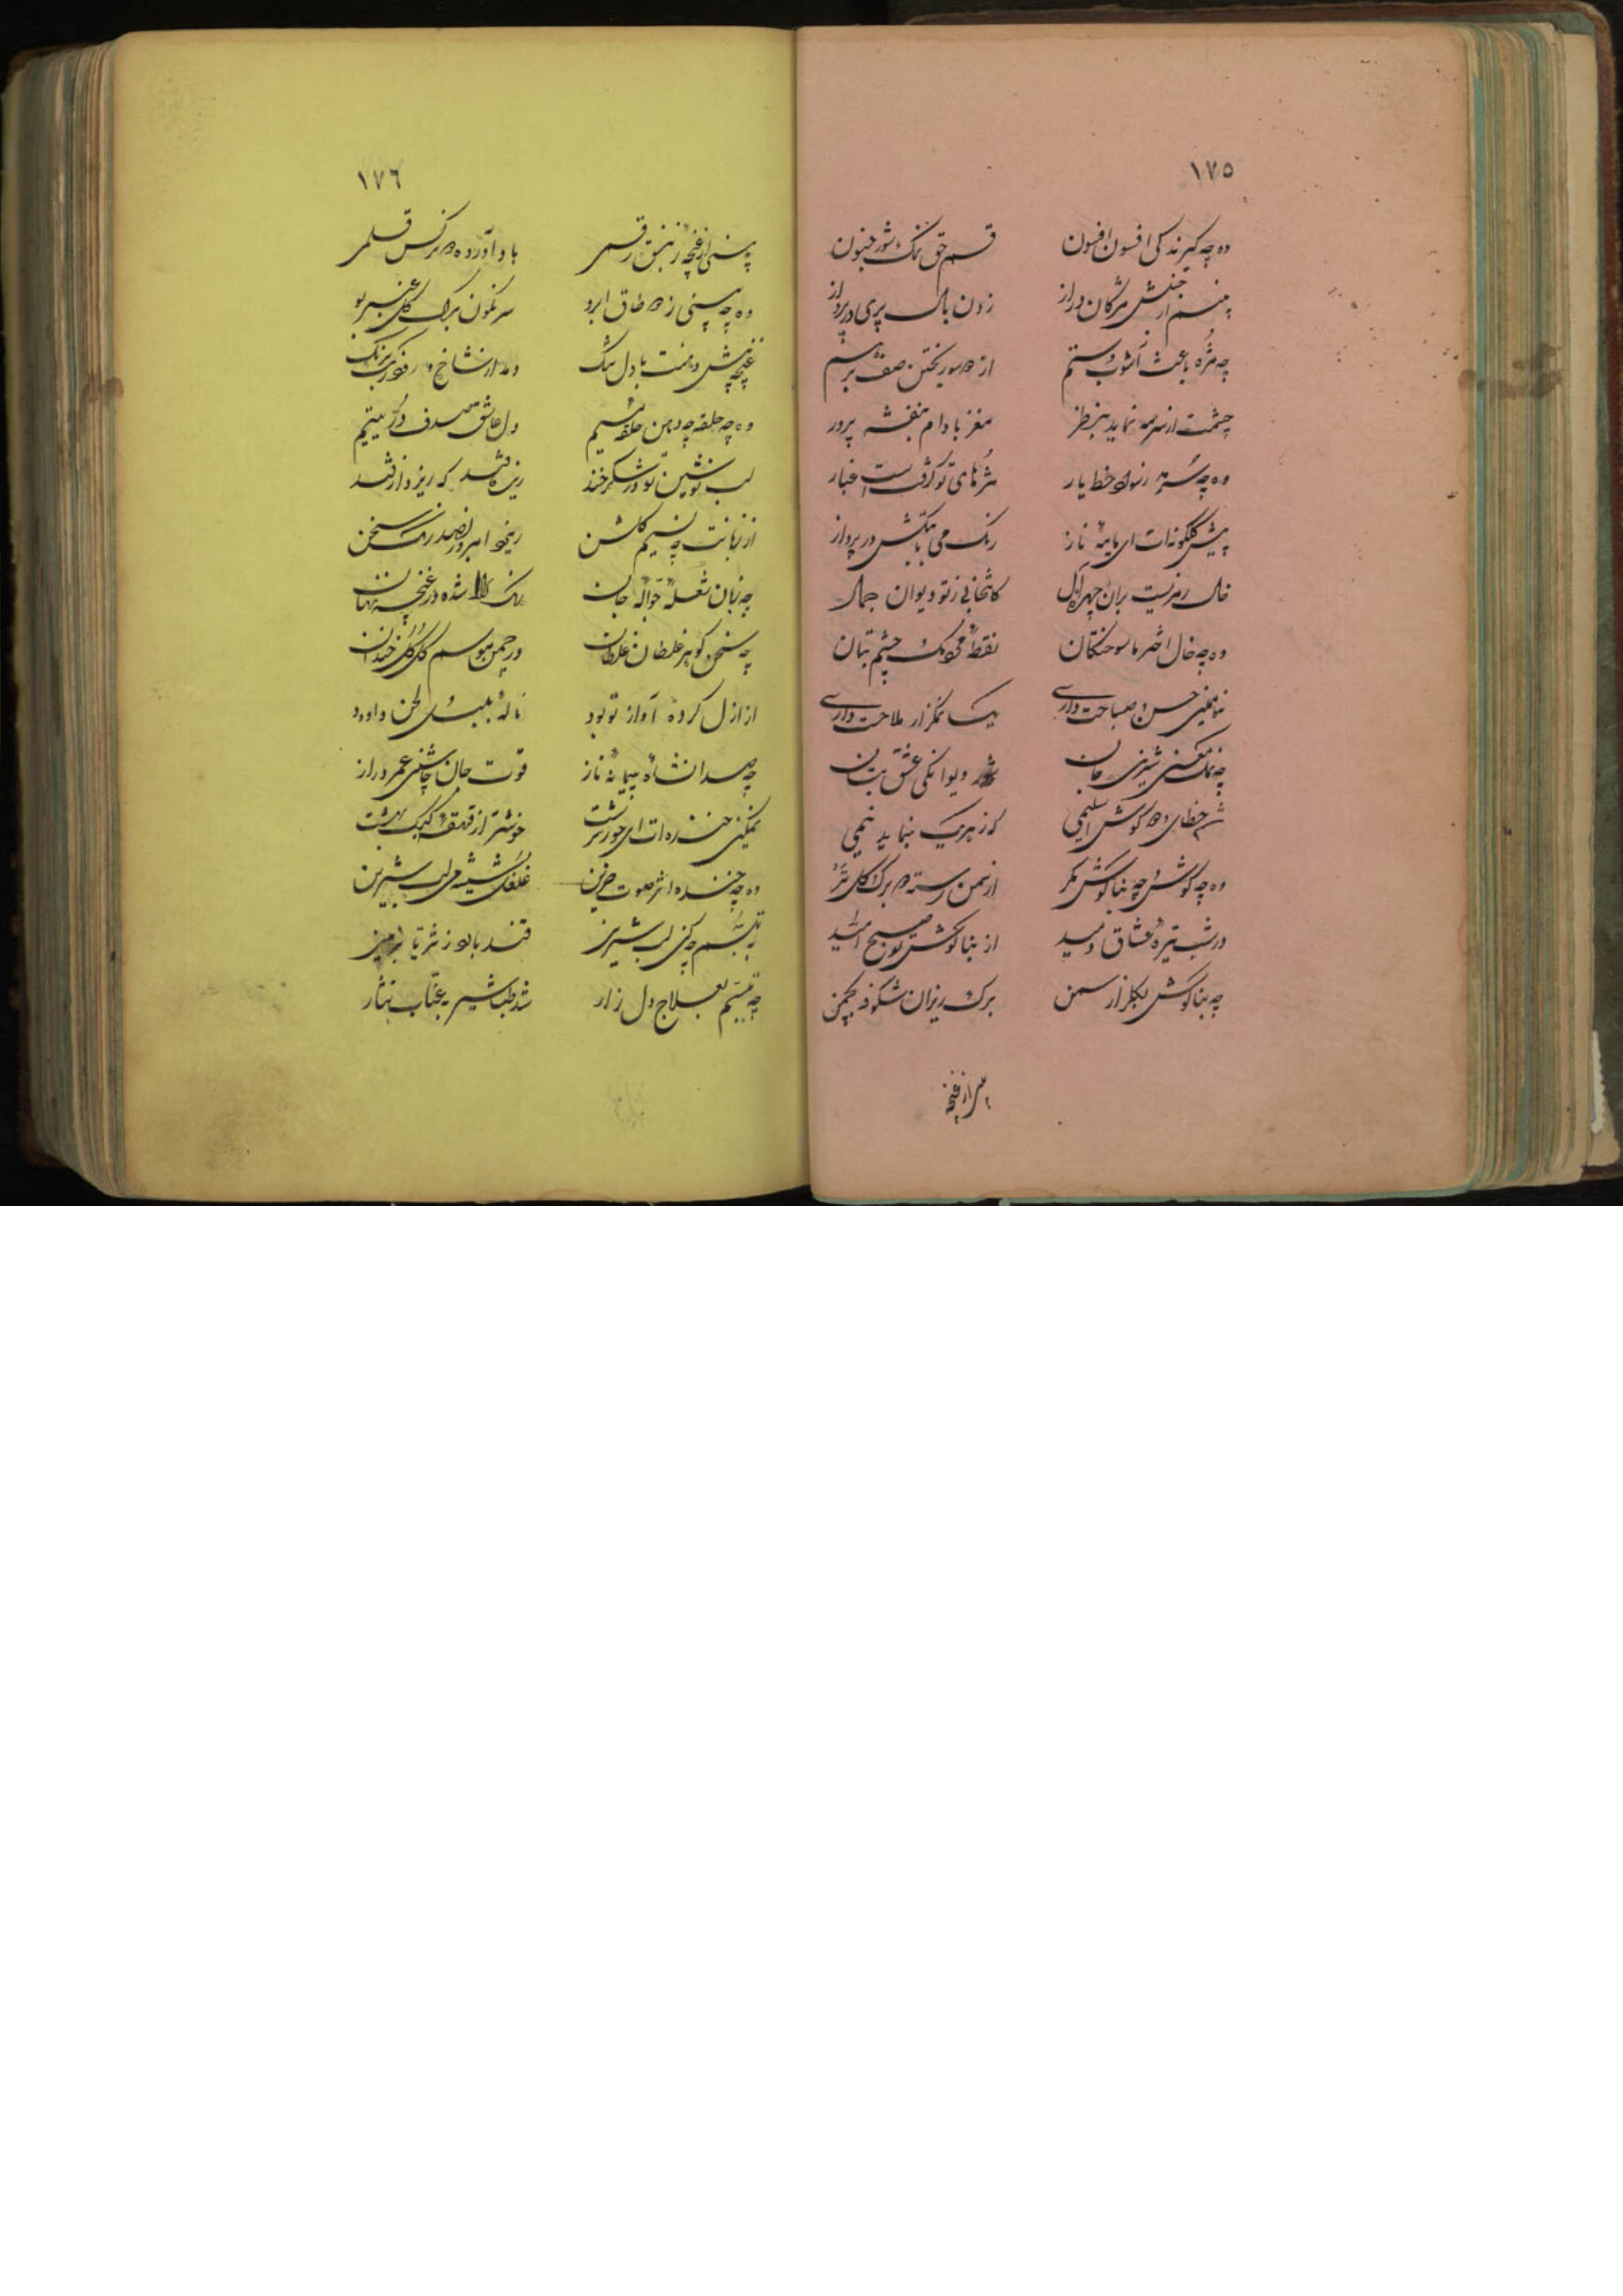 ١٧٥
وه چه گیرندگی افسون افسون قسم حق نمک شور جنون
بینم از جنبش مژگان دراز زدن بال پری در پرواز
چه مژه باعث آشوب و ستم از دو سو ریختن صف برهم
چشمت از سرمه نماید بنظر مغز بادام بنفشه پرور
وه چه سرمه خط یار مژهای تو گرفتست غبار
پیش گلگونه‌ات ای مایهٔ ناز رنگ می با در پرواز
خال رمزیست بران چهرهٔ آل کانتخابی ز تو دیوان جمال
وه چه خال اختر ما سوختگان نقطهٔ محو چشم بتان
حسن و صباحت داری یک نمکزار ملاحت داری
چه نمک معنی شیرینی جان شور دیوانگی عشق بتان
خطای دو گوش اسلیمی که ز هر یک بنماید نیمی
وه چه گوش و چه بناگوش مگر از سمن رسته دو برگ گل تر
در شب تیرهٔ عشاق دمید از بناگوش تو صبح امید
چه بناگوش بگلزار سمن برگ ریزان شکوفه بچمن
١٧٦
بینی از غنچهٔ زنبق رقمی باد آورده دو نرگس قلمی
وه چه بینی ز دو طاق ابرو سرنگون برگ گل عنبر بو
غنچه پیش دهنت با دل تنگ دمد از شاخ
وه چه حلقه چه دهن حلقهٔ میم دل عاشق صدف در یتیم
لب نوشین تو در شکر خند ریزه قند که ریزد از قند
از زبانت چه نسیم گلشن ریخت امروز بصد رنگ سخن
چه زبان شعلهٔ جوالهٔ جان رنگ شده در غنچه نهان
چه سخن گوهر غلطان غلطان در چمن موسم گل گل خندان
از ازل کردهٔ آواز تو بود نالهٔ بلبل و لحن داود
چه صدا نشاهٔ پیمانهٔ ناز قوت جان چاشنی عمر دراز
نمکین خنده‌ات ای حور سرشت خوشتر از قهقههٔ کبک بهشت
وه چه خنده اثر صوت حزین غلغل شیشه می لب شیرین
به تبسم چه کنی لب شیرین قند بالوزه ثریا
چه تبسم بعلاج دل زار شد طباشیر بعناب نثار